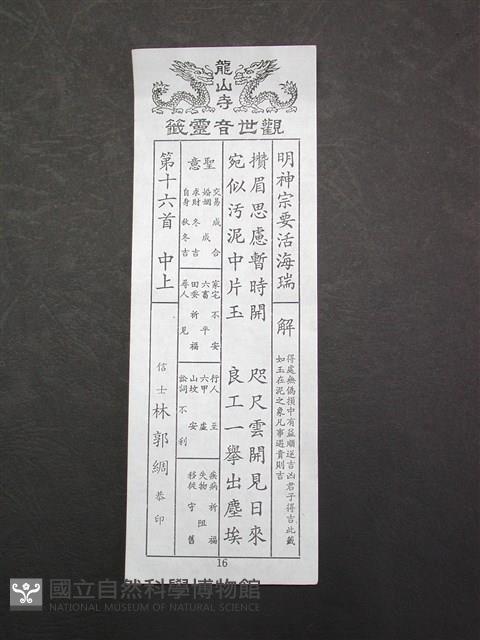 龍山寺
觀世音靈籤
明神宗要活海瑞
解
得處無偽損中有益順逆吉凶君子得吉此籤
如玉在泥之象凡事遇貴則吉
攢眉思慮暫時開 咫尺雲開見日來
宛似汚泥中片玉 良工一舉出塵埃
聖意
交易 成合
婚姻 成
求財 冬吉
自身 秋冬吉
家宅 不安
六畜 平
田蚕 祈福
尋人 見
行人 至
六甲 虛
山坟 安
訟詞 不利
疾病 祈福
失物 阻
移徙 守舊
第十六首 中上
信士 林郭綢 恭印
16
國立自然科學博物館
NATIONAL MUSEUM OF NATURAL SCIENCE